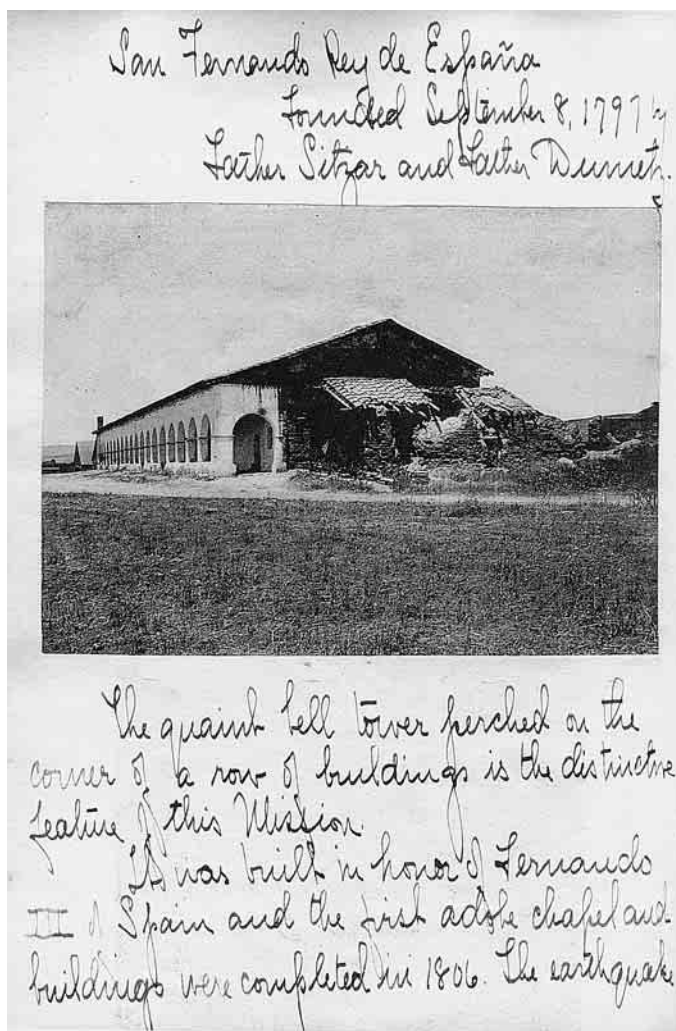 San Fernando Rey de España
Founded September 8, 1797 by
Father Sitzar and Father Dumetz.
The quaint bell tower perched on the
corner of a row of buildings is the distinctive
feature of this Mission.
It was built in honor of Fernando
III of Spain and the first adobe chapel and
buildings were completed in 1806. The earthquake